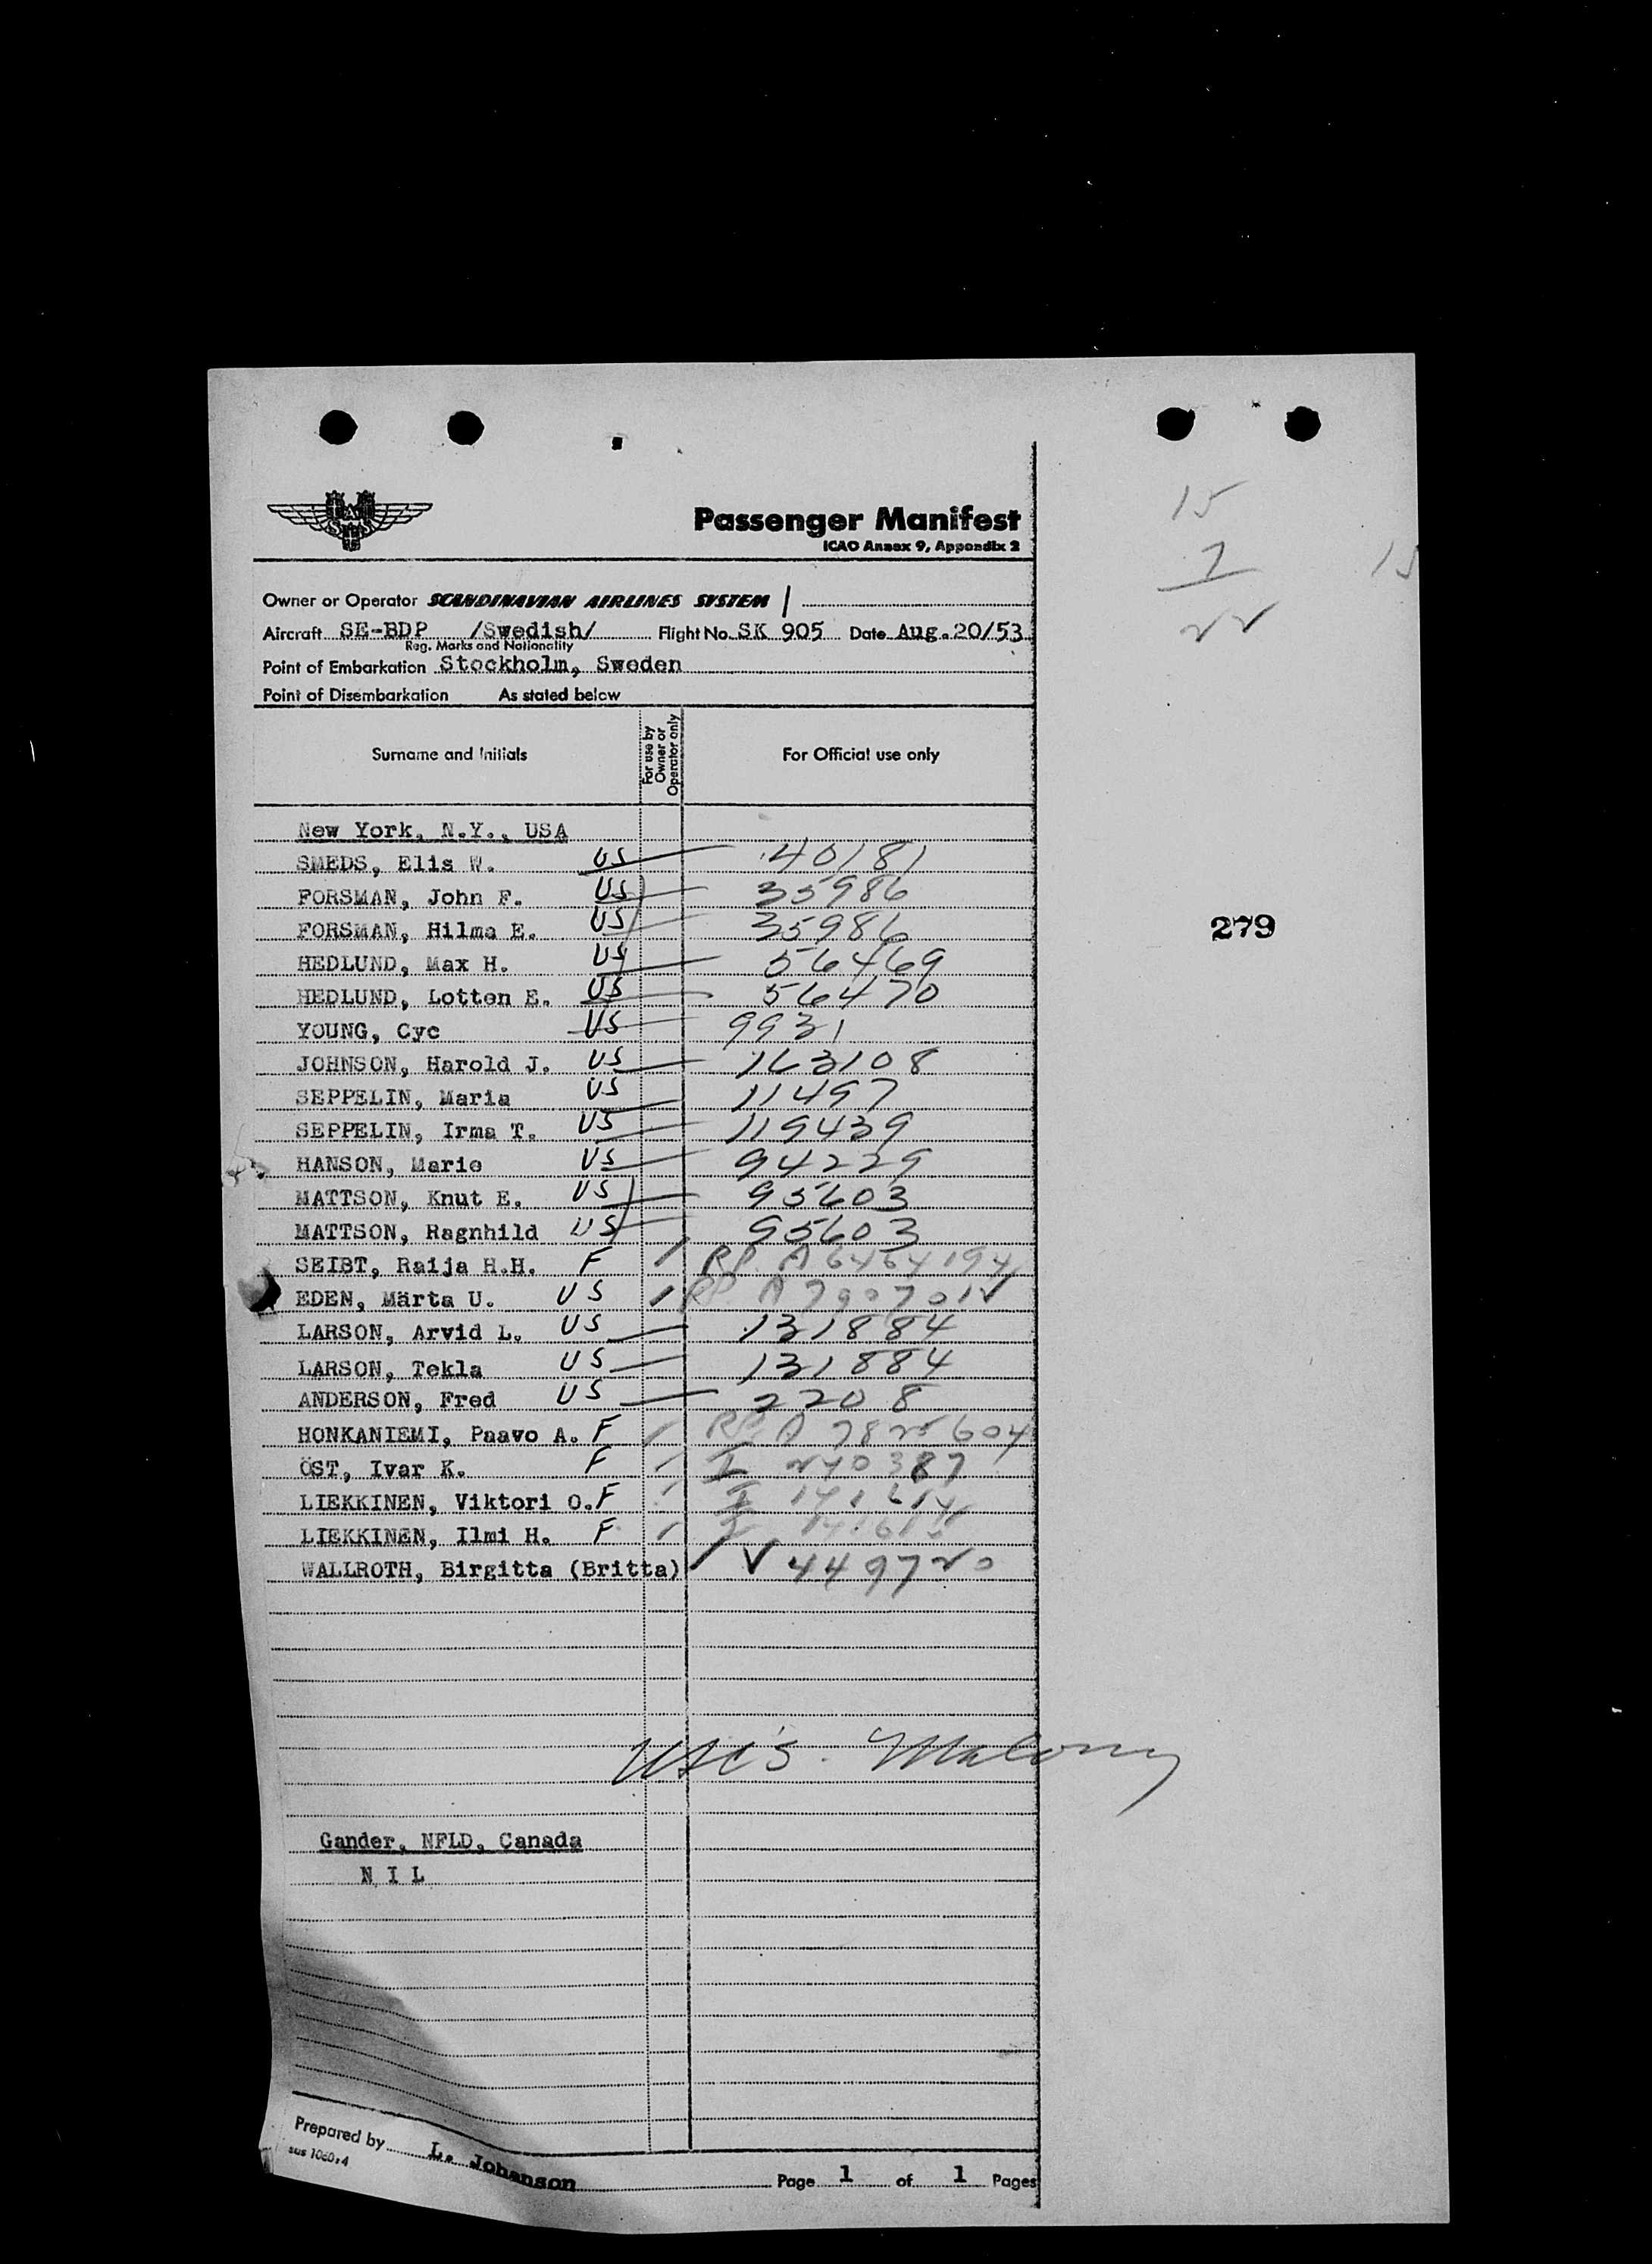 Passenger Manifest
ICAO Annex 9, Appendix 2
15
7
22
15
Owner or Operator SCANDINAVIAN AIRLINES SYSTEM /
Aircraft SE-BDP /Swedish/ Flight No. SK 905 Date Aug. 20/53
Reg. Marks and Nationality
Point of Embarkation Stockholm, Sweden
Point of Disembarkation As stated below
Surname and Initials For use by Owner or Operator only For Official use only
New York, N.Y., USA
SMEDS, Elis W. US 40181
FORSMAN, John F. US 35986
FORSMAN, Hilma E. US 35986
279
HEDLUND, Max H. US 56469
HEDLUND, Lotten E. US 56470
YOUNG, Cyc US 9931
JOHNSON, Harold J. US 163108
SEPPELIN, Maria US 11497
SEPPELIN, Irma T. US 119439
HANSON, Marie US 94229
MATTSON, Knut E. US 95603
MATTSON, Ragnhild US 95603
SEIBT, Raija H.H. F RP A6464194
EDEN, Märta U. US RP A7907012
LARSON, Arvid L. US 131884
LARSON, Tekla US 131884
ANDERSON, Fred US 2208
HONKANIEMI, Paavo A. F RP A 7825604
ÖST, Ivar K. F I 240387
LIEKKINEN, Viktori O. F I
LIEKKINEN, Ilmi H. F I
WALLROTH, Birgitta (Britta) V 449720
USC's. Malony
Gander, NFLD, Canada
N I L
Prepared by L. Johanson
sus 1060:4
Page 1 of 1 Pages